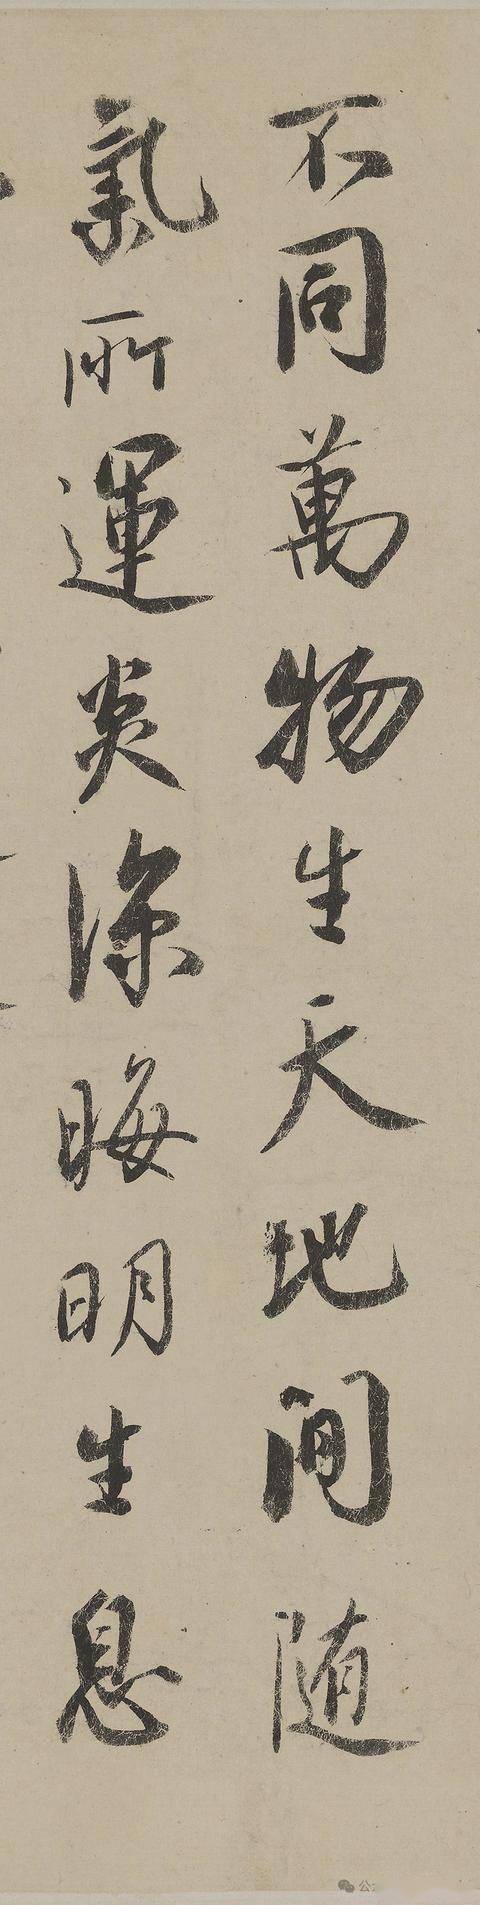 不同萬物生天地間随
氣所運炎涼晦明生息
公